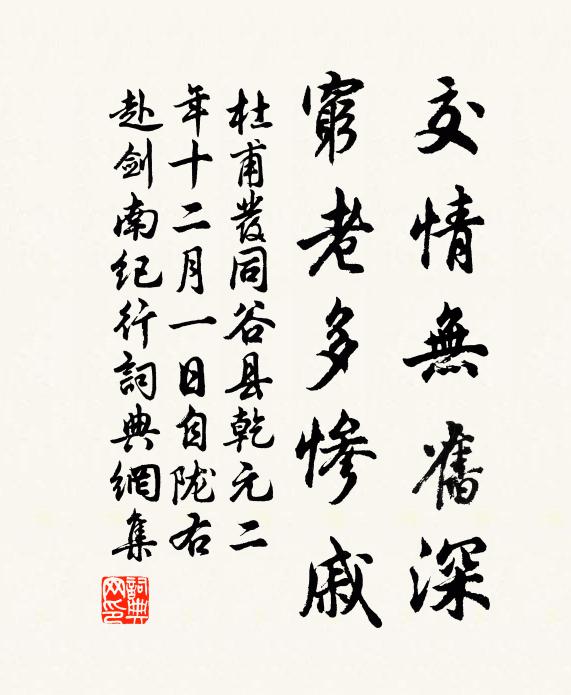 交情無舊深
窮老多慘戚
杜甫發同谷县乾元二
年十二月一日自陇右
赴剑南纪行詞典網集
詞典網印